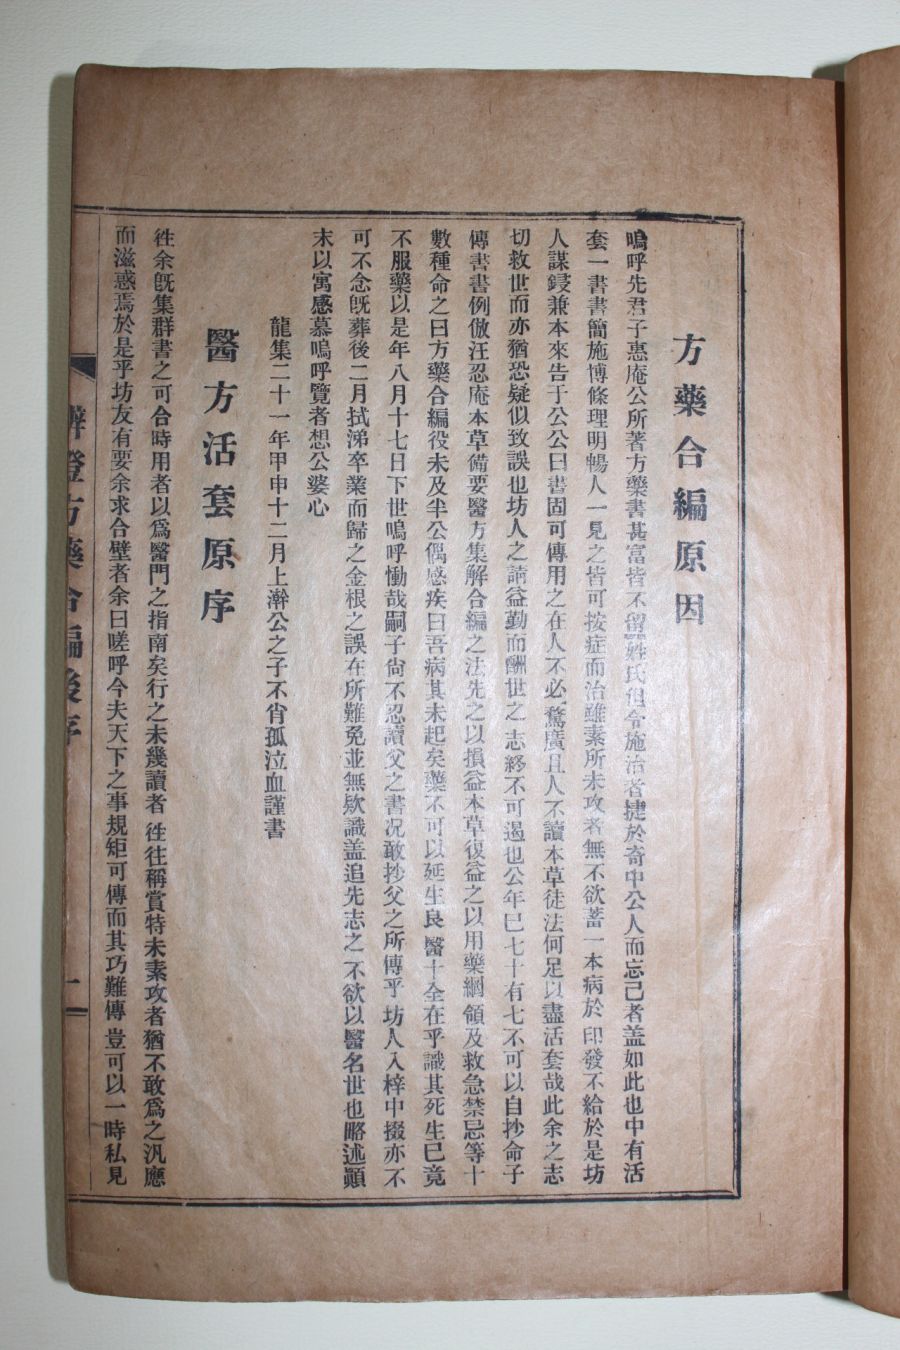 方藥合編原因
嗚呼先君子惠庵公所著方藥書甚富皆不留姓氏但令施治者捷於奇中公人而忘己者盖如此也中有活
套一書書簡施博條理明暢人一見之皆可按症而治雖素所未攻者無不欲蓄一本病於印發不給於是坊
人謀鋟兼本來告于公公曰書固可傳用之在人不必騖廣且人不讀本草徒法何足以盡活套哉此余之志
切救世而亦猶恐疑似致誤也坊人之請益勤而酬世之志終不可遏也公年巳七十有七不可以自抄命子
傳書書例倣汪忍庵本草備要醫方集解合編之法先之以損益本草復益之以用藥綱領及救急禁忌等十
數種命之曰方藥合編役未及半公偶感疾曰吾病其未起矣藥不可以延生良醫十全在乎識其死生巳竟
不服藥以是年八月十七日下世嗚呼慟哉嗣子尙不忍讀父之書况敢抄父之所傳乎坊人入梓中掇亦不
可不念旣葬後二月拭涕卒業而歸之金根之誤在所難免並無欵識盖追先志之不欲以醫名世也略述顚
末以寓感慕嗚呼覽者想公婆心
龍集二十一年甲申十二月上澣公之子不肖孤泣血謹書
醫方活套原序
徃余旣集群書之可合時用者以爲醫門之指南矣行之未幾讀者徃往稱賞特未素攻者猶不敢爲之汎應
而滋惑焉於是乎坊友有要余求合璧者余曰嗟呼今夫天下之事規矩可傳而其巧難傳豈可以一時私見
辨證方藥合編後序
一